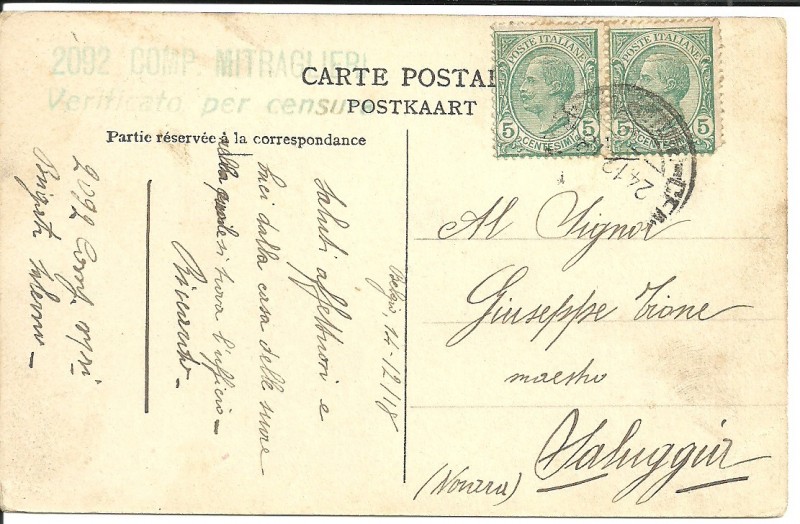 2092 COMP. MITRAGLIERI
Verificato per censura
CARTE POSTAL
POSTKAART
Partie réservée à la correspondance
POSTE ITALIANE
5 CENTESIMI 5
POSTE ITALIANE
5 CENTESIMI 5
24.12
Belgio, 14-12/18
Saluti affettuosi e
baci dalla casa delle suore
nella quale si trova l'ufficio —
Riccardo —
2092 Comp.
Brigata Palermo —
Al Signor
Giuseppe Tione
maestro
Saluggia
(Novara)